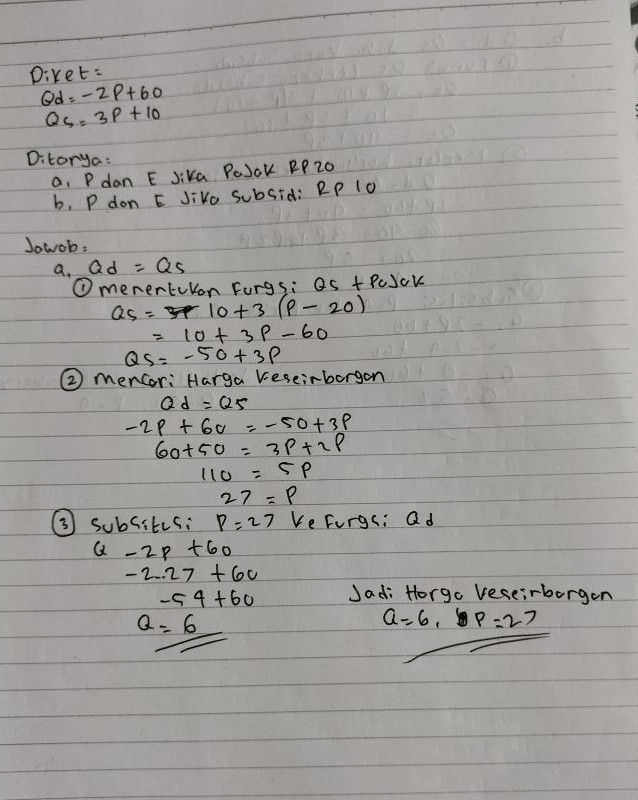 Diket:
Qd = -2P+60
Qs = 3P + 10
Ditanya:
a. P dan E Jika Pajak RP 20
b. P dan E Jika Subsidi RP 10
Jawab:
a. Qd = Qs
① Menentukan Fungsi Qs + Pajak
Qs = 10+3 (P - 20)
= 10 + 3P - 60
Qs = -50 + 3P
② Mencari Harga Keseimbangan
Qd = Qs
-2P + 60 = -50+3P
60+50 = 3P+2P
110 = 5P
27 = P
③ Subsitusi P=27 Ke Fungsi Qd
Q -2P +60
-2.27 +60
-54+60
Q = 6
Jadi Harga Keseimbangan
Q=6, P=27